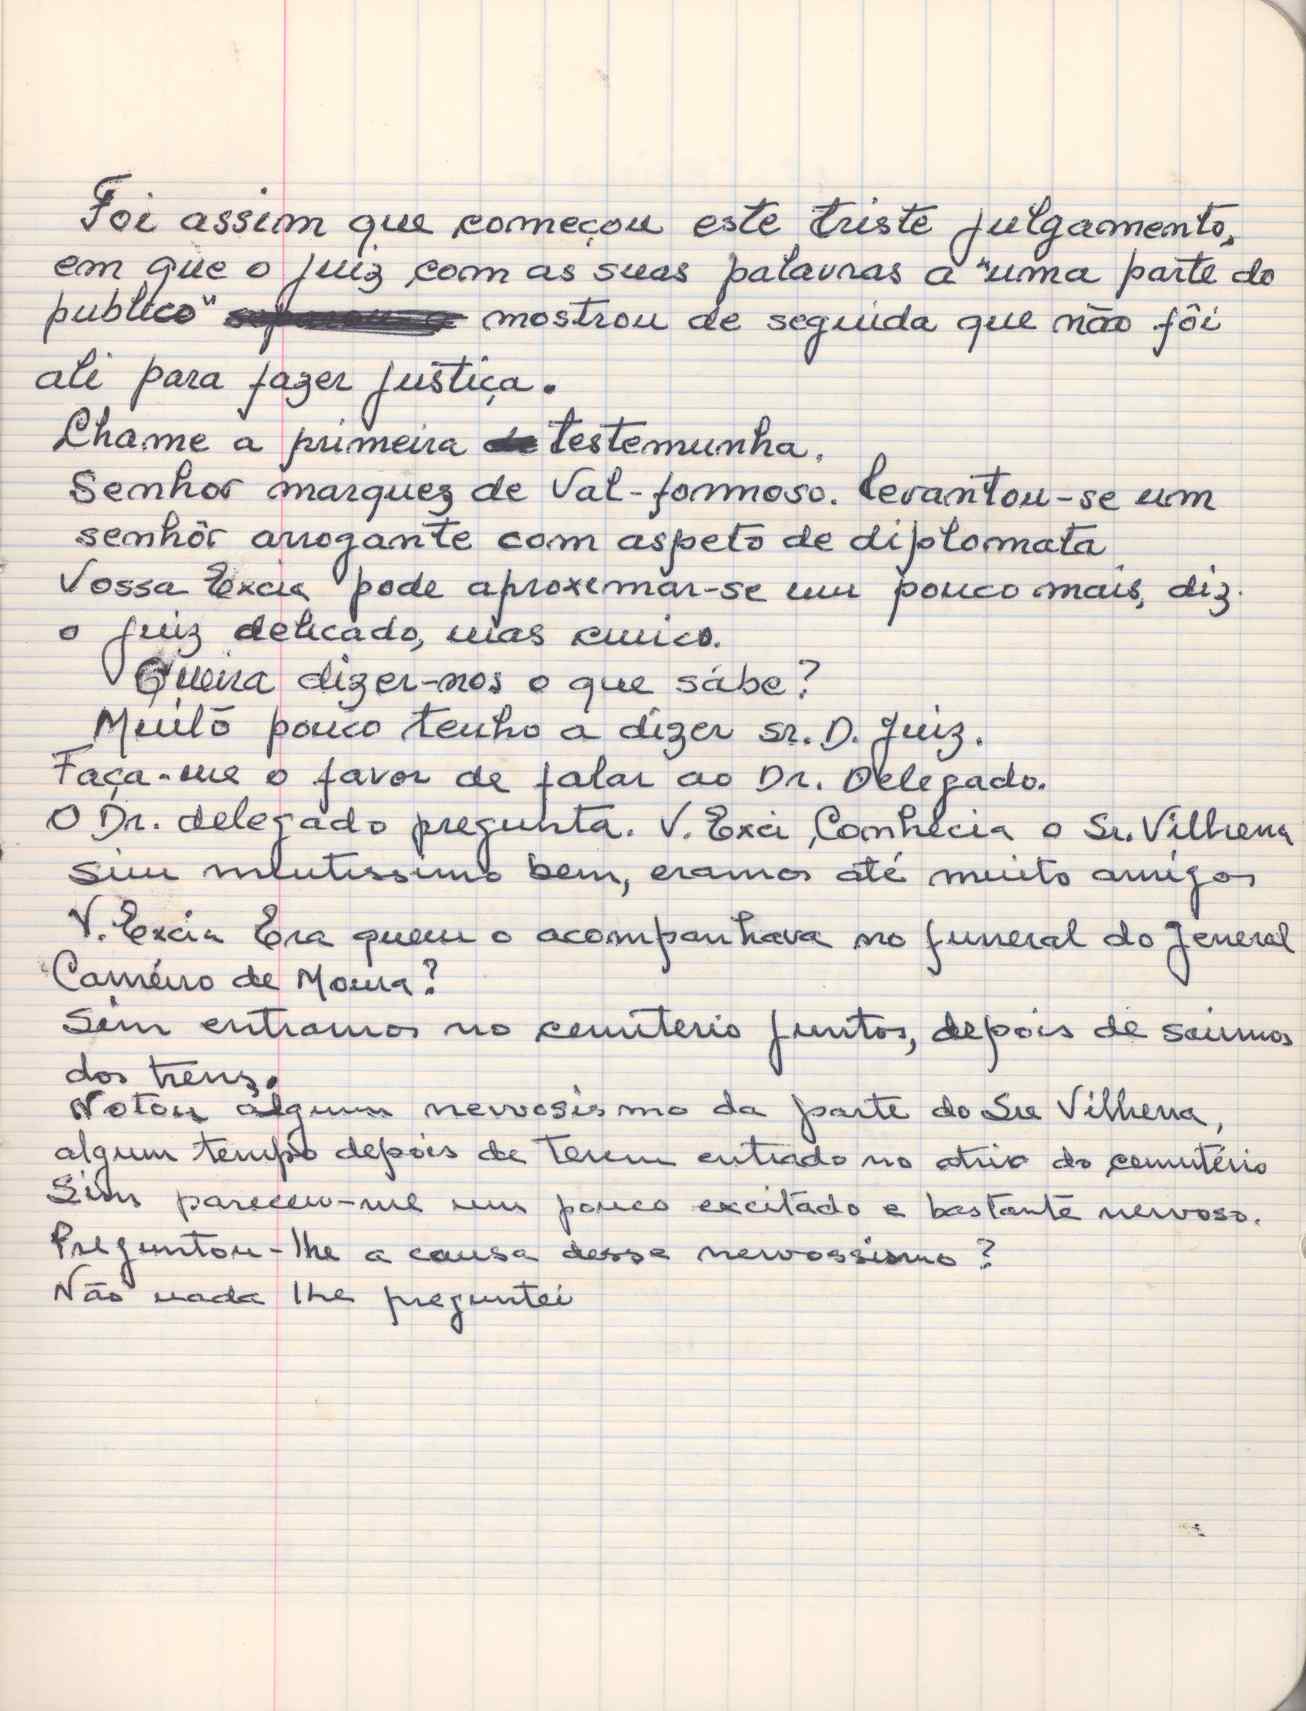 Foi assim que começou este triste julgamento,
em que o juiz com as suas palavras a "uma parte do
publico" mostrou de seguida que não fôi
ali para fazer justiça.
Chame a primeira testemunha.
Senhor marquez de Val-formoso. levantou-se um
senhôr arrogante com aspeto de diplomata
Vossa Excia pode aproxemar-se um pouco mais, diz
o juiz delicado, mas cinico.
Queira dizer-nos o que sábe?
Muito pouco tenho a dizer sr. D. Juiz.
Faça-me o favor de falar ao Dr. Delegado.
O Dr. delegado pregunta. V. Exci Conhecia o Sr. Vilhena
Sim muitissimo bem, eramos até muito amigos
V. Excia Era quem o acompanhava no funeral do Jeneral
Carneiro de Moura?
Sim entramos no cemiterio juntos, depois de saimos
dos trens.
Notou algum nervosismo da parte do Sr Vilhena,
algum tempo depois de terem entrado no atrio do cemitério
Sim pareceu-me um pouco excitado e bastante nervoso.
Preguntou-lhe a causa desse nervossismo?
Não nada lhe preguntei